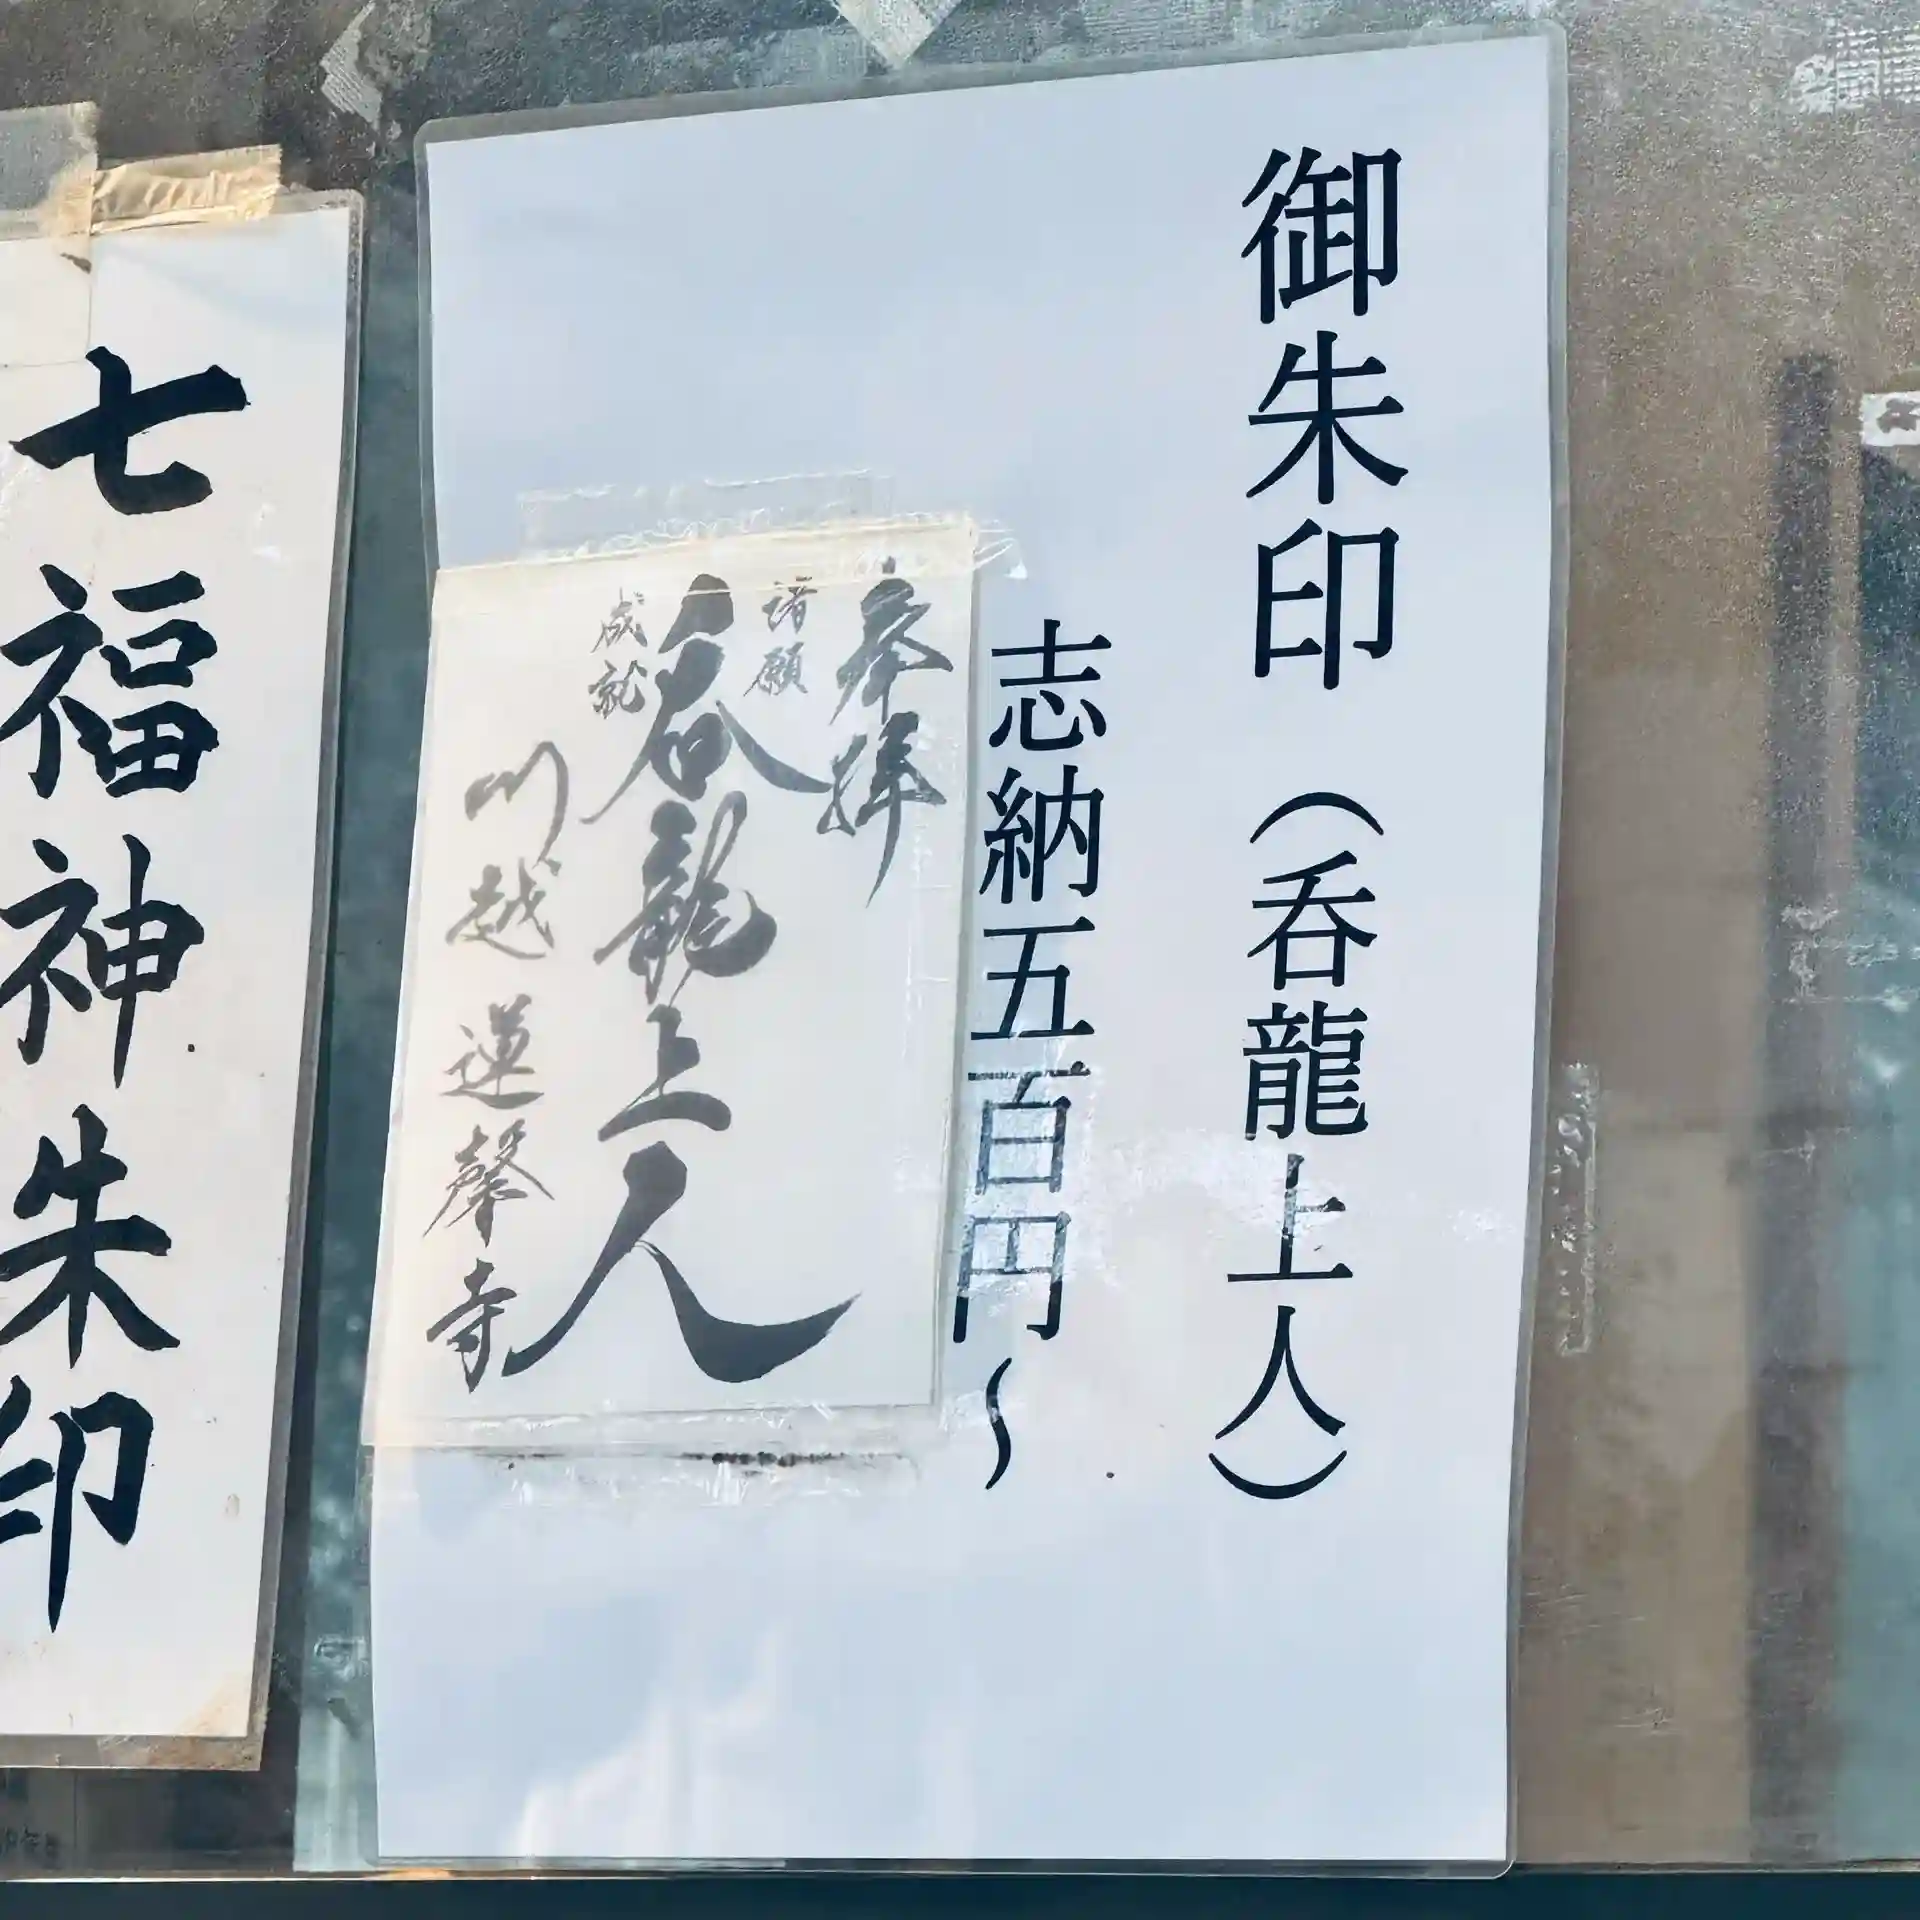 御朱印（呑龍上人）
志納五百円～
奉拝
諸願
呑龍上人
成就
川越 蓮馨寺
七福神朱印